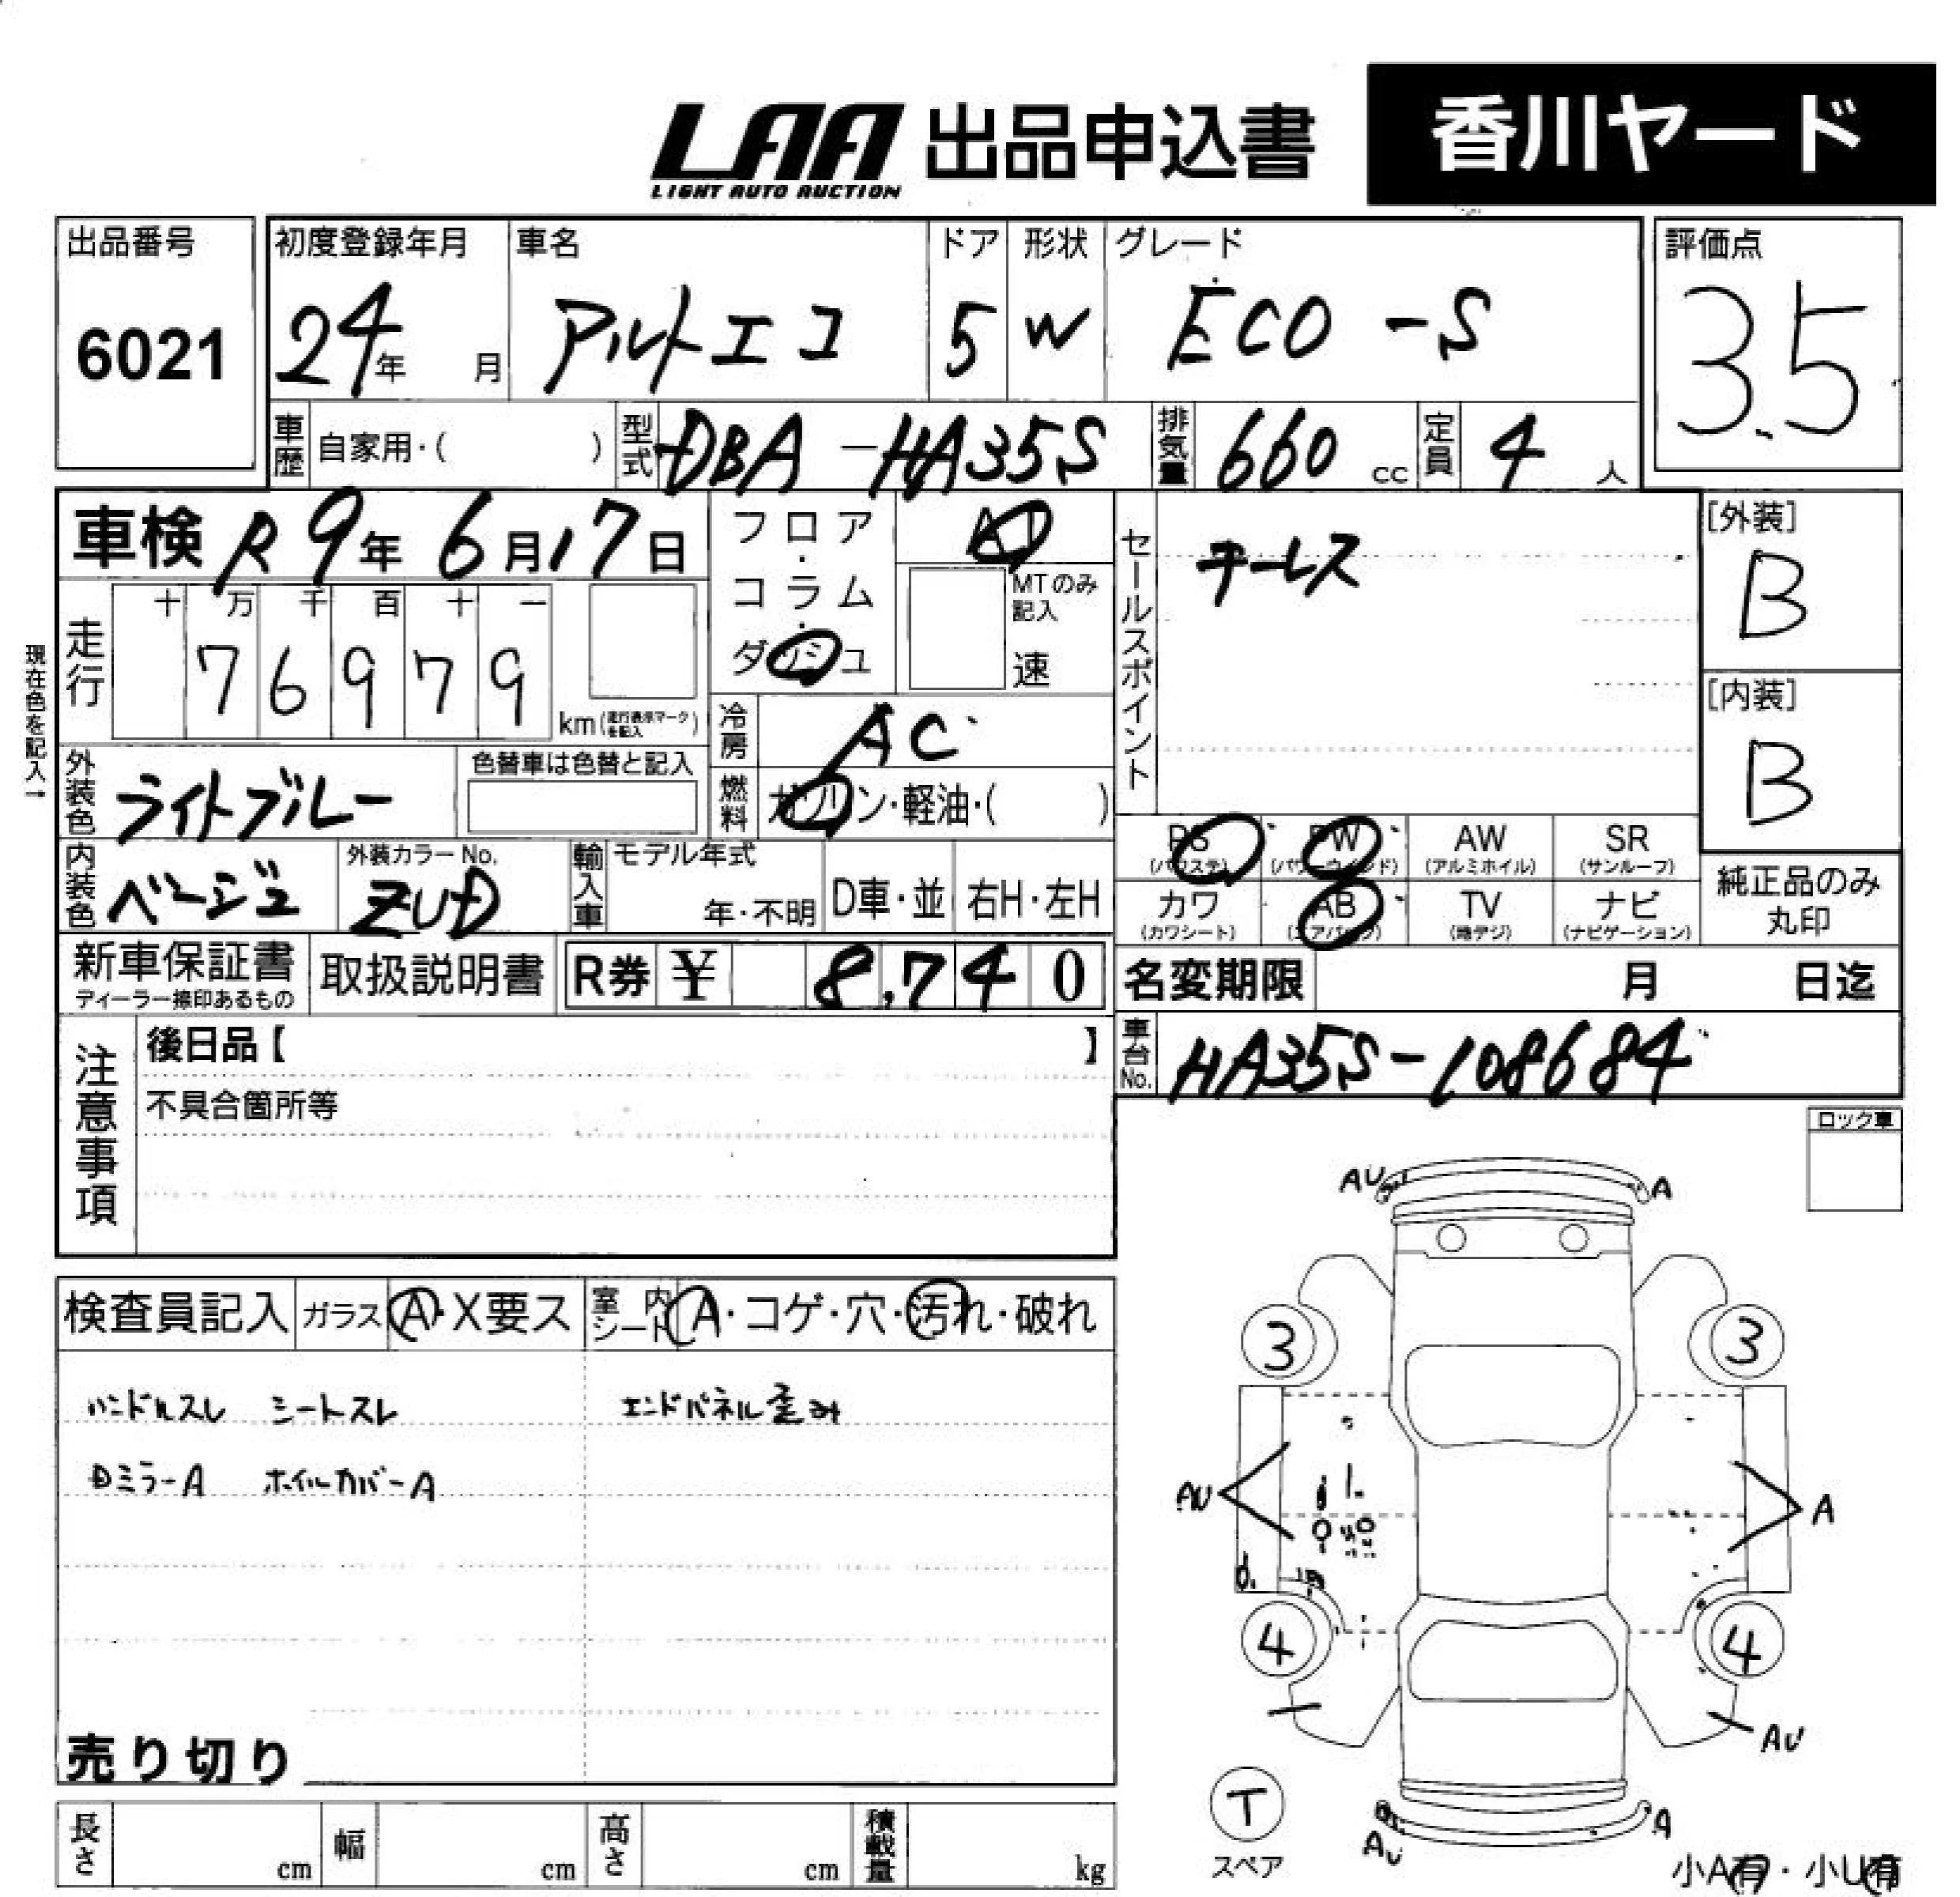 LAA 出品申込書 香川ヤード
LIGHT AUTO AUCTION
出品番号 初度登録年月 車名 ドア 形状 グレード 評価点
6021 24年 月 アルトエコ 5 W ECO-S 3.5
車歴 自家用・( ) 型式 DBA-HA35S 排気量 660 cc 定員 4 人
車検 R9年 6月17日 フロア・コラム・ダッシュ AT セールスポイント キーレス [外装]
B
MTのみ記入 速
現在色を記入→
走行 十 万 千 百 十 一
7 6 9 7 9 km (走行表示マークを記入)
[内装]
B
冷房 AC
外装色 ライトブルー 色替車は色替と記入 燃料 ガソリン・軽油・( )
PS PW AW SR
(パワステ) (パワーウインド) (アルミホイル) (サンルーフ)
内装色 ベージュ 外装カラーNo. ZUD 輸入車 モデル年式 年・不明 D車・並 右H・左H
カワ AB TV ナビ 純正品のみ
(カワシート) (エアバッグ) (地デジ) (ナビゲーション) 丸印
新車保証書 取扱説明書 R券 ¥ 8,740 名変期限 月 日迄
ディーラー捺印あるもの
注意事項 後日品【 】 車台No. HA35S-108684
不具合箇所等
ロック車
AU A
検査員記入 ガラス A・X要ス 室内シート A・コゲ・穴・汚れ・破れ
3 3
ハンドルスレ シートスレ エンドパネル歪み
Dミラ-A ホイルカバーA
AU A
4 4
AU
売り切り
T
スペア
AU A
長さ cm 幅 cm 高さ cm 積載量 kg
小A有・小U有